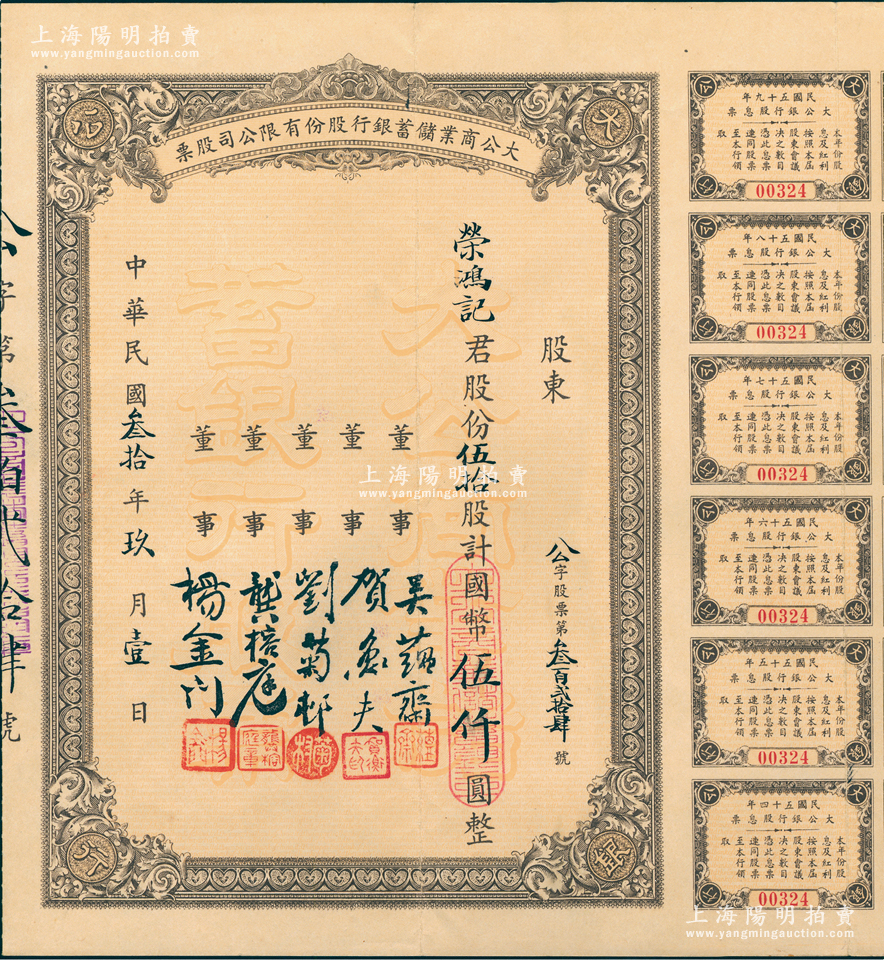 上海陽明拍賣
www.yangmingauction.com
大公商業儲蓄銀行股份有限公司股票
大
公
銀
行
公字股票第叁百貳拾肆號
股東
榮鴻記君股份伍拾股計國幣伍仟圓整
董事 吳蘊齋
董事 賀衡夫
董事 劉菊邨
董事 龔榕庭
董事 楊金門
中華民國叁拾年玖月壹日
公字第叁百貳拾肆號
大公商業儲蓄銀行
上海陽明拍賣
www.yangmingauction.com
民國五十九年
大公銀行股息票
本年份股
息及紅利
按照本屆
股東會議
決之數目
憑此息票
連同股票
至本行領
取
00324
民國五十八年
大公銀行股息票
本年份股
息及紅利
按照本屆
股東會議
決之數目
憑此息票
連同股票
至本行領
取
00324
民國五十七年
大公銀行股息票
本年份股
息及紅利
按照本屆
股東會議
決之數目
憑此息票
連同股票
至本行領
取
00324
民國五十六年
大公銀行股息票
本年份股
息及紅利
按照本屆
股東會議
決之數目
憑此息票
連同股票
至本行領
取
00324
民國五十五年
大公銀行股息票
本年份股
息及紅利
按照本屆
股東會議
決之數目
憑此息票
連同股票
至本行領
取
00324
民國五十四年
大公銀行股息票
本年份股
息及紅利
按照本屆
股東會議
決之數目
憑此息票
連同股票
至本行領
取
00324
上海陽明拍賣
www.yangmingauction.com